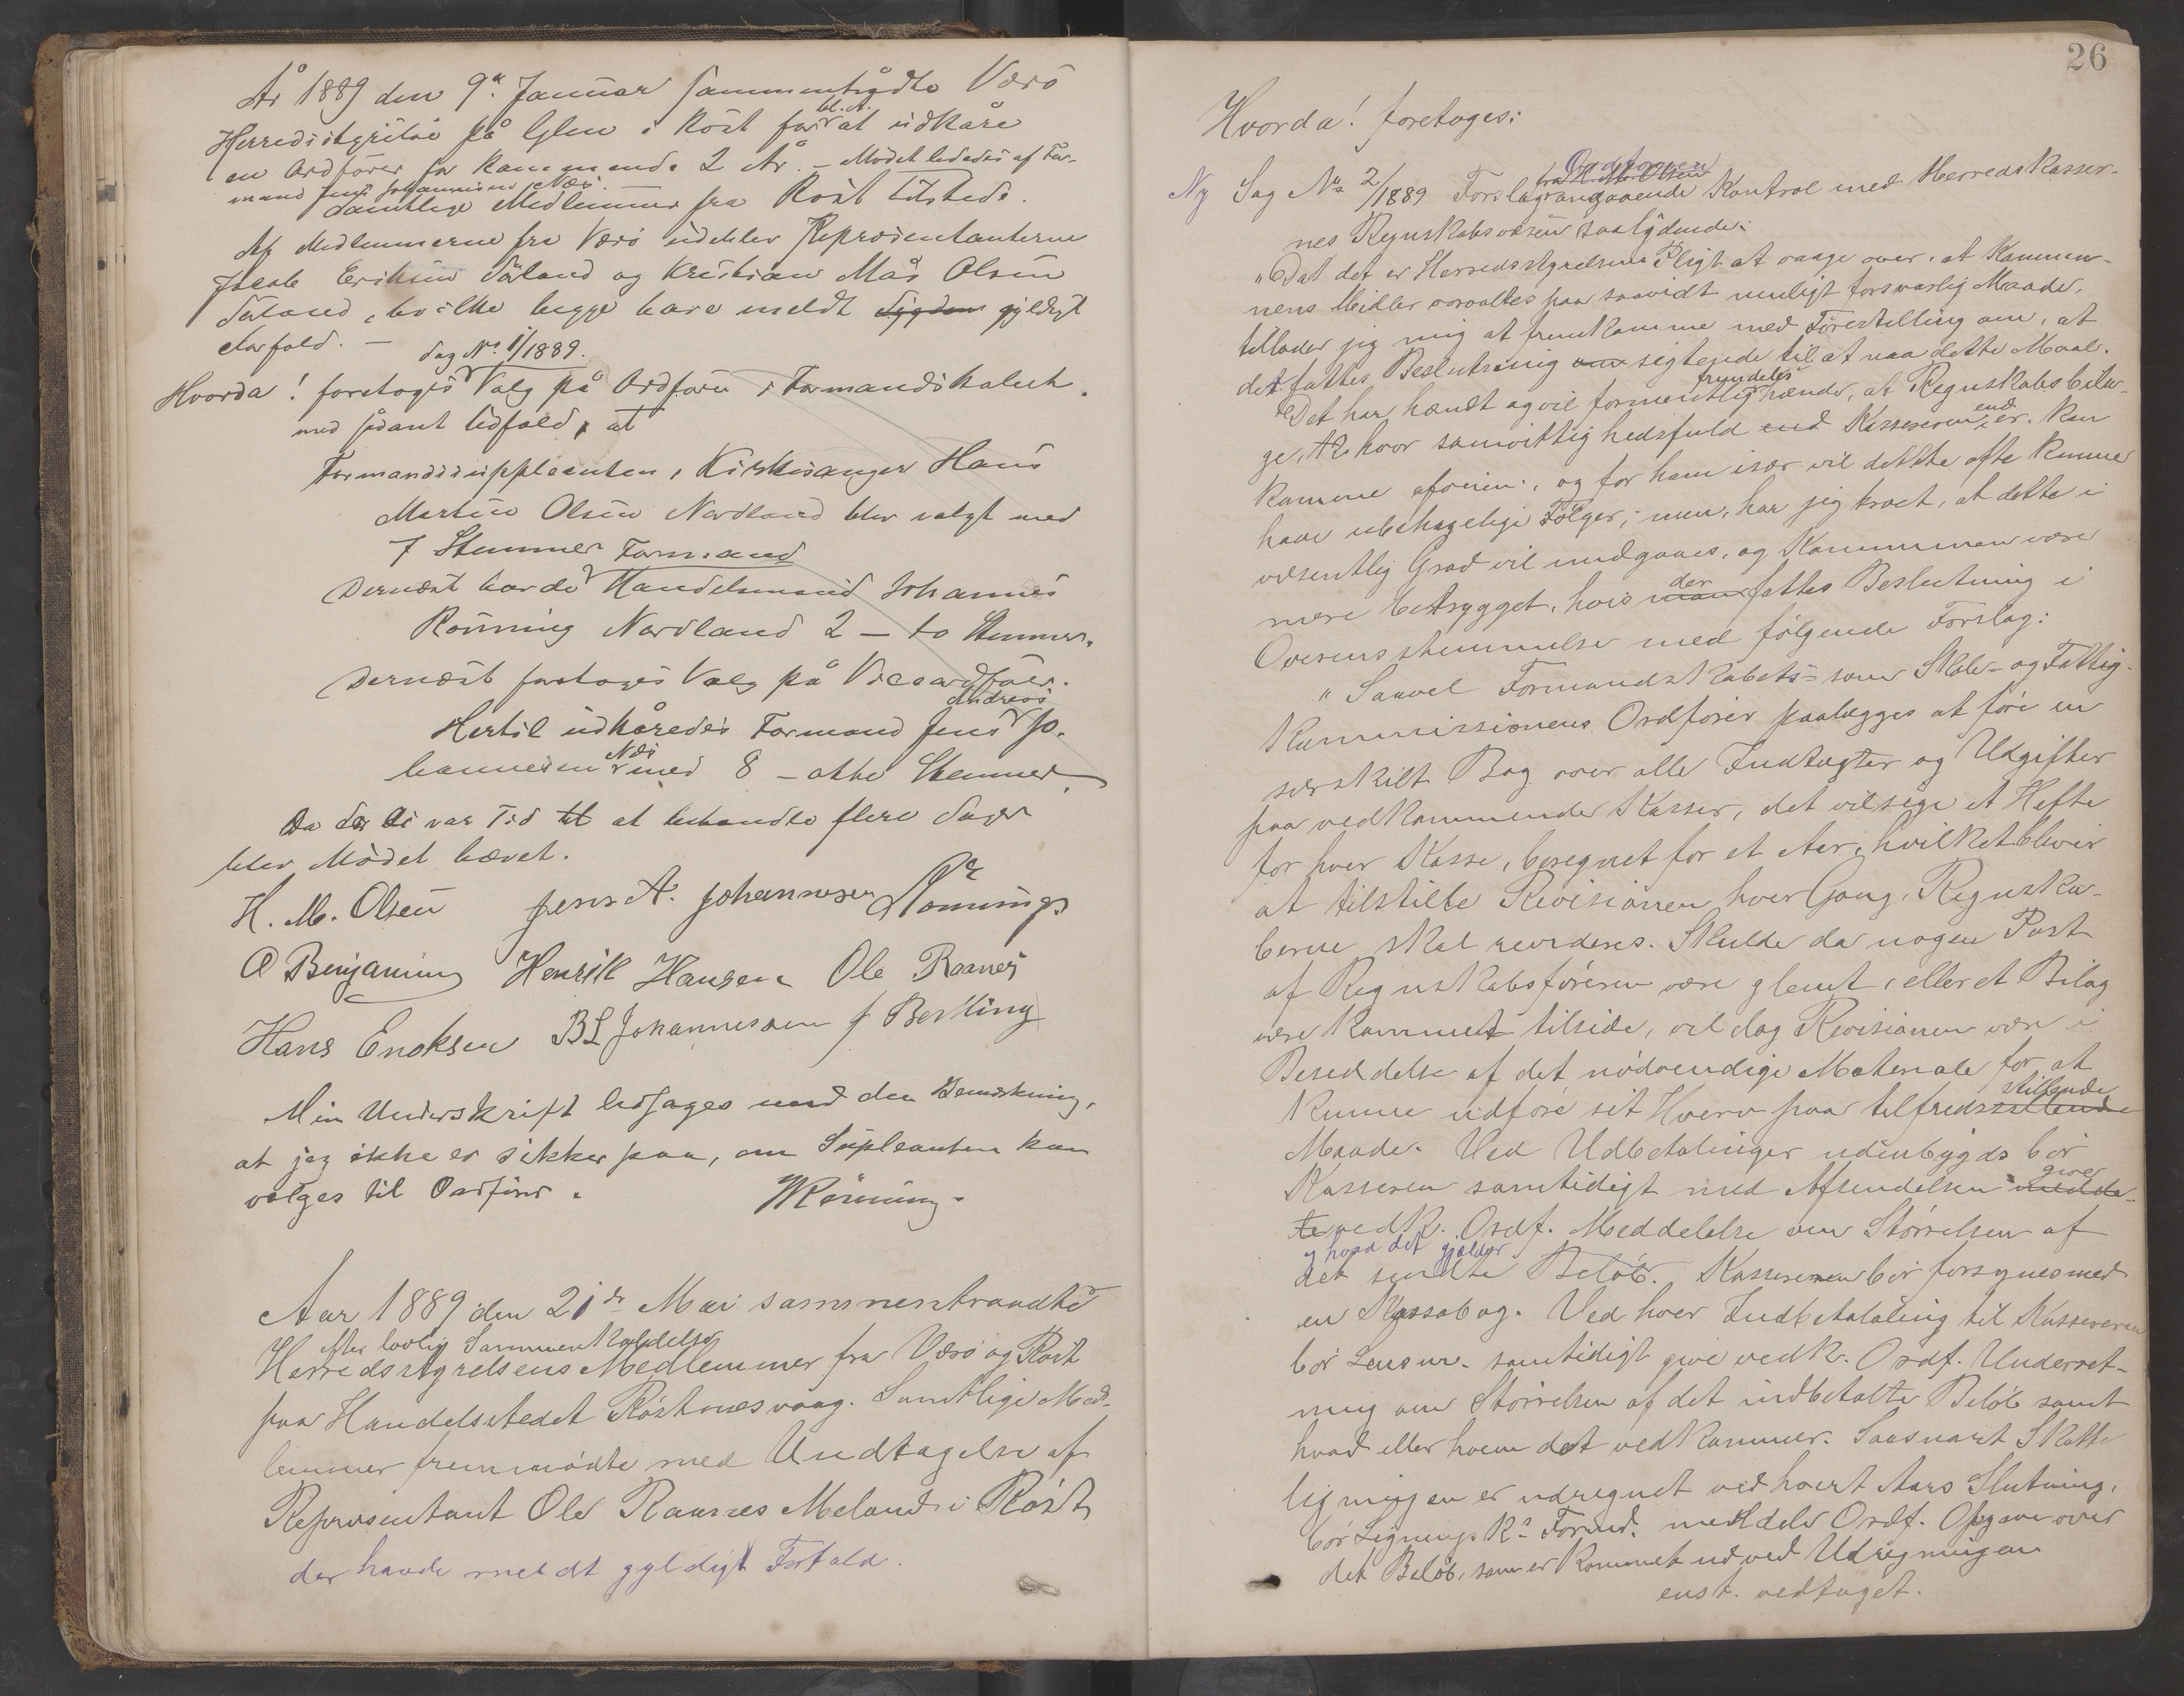 År 1889 den 9de Januar sammentrådte Værö
Herredsstyrelse på Glea i Röst for bl. A. at udkåre
en Ordförer for kommende 2 År. – Mödet lededes af For-
mand Jens Johannesen Næs.
Samtlige Medlemmer fra Röst tilstede.
Af Medlemmerne fra Værö udeblev Repræsentanterne
Jacob Eriksen Sörland og Kristian Mås Olsen
Sörland, hvilke begge have meldt Sygdom gyldigt
Forfald. – Sag No 1/1889.
Hvorda! foretoges Valg på Ordförer i Formandskabet
med sådant Udfald, at
Formandssuppleanten, Kirkesanger Hans
Martin Olsen Nordland blev valgt med
7 Stemmer
Dernæst havde Formand Handelsmand Johannes
Rönning Nordland 2 – to Stemmer.
Dernæst foretoges Valg på Viceordförer.
Hertil udkåredes Formand Jens Andreas Jo-
hannesen Næs med 8 – otte Stemmer.
Da der ei var Tid til at behandle flere Sager
blev Mödet hævet.
H. M. Olsen Jens A. Johannesen Rönning
O Benjamins Henrik Hansen Ole Raanes
Hans Enoksen B L Johannessen J Berling
Min Underskrift ledsages med den Bemærkning,
at jeg ikke er sikker paa, om Supleanten kan
vælges til Ordförer. Rönning.
Aar 1889 den 21de Mai sammentraadte
efter lovlig Sammenkaldelse
Herredsstyrelsens Medlemmer fra Værö og Röst
paa Handelsstedet Röstnesvaag. Samtlige Med-
lemmer fremmödte med Undtagelse af
Repræsentant Ole Raanes Meland i Röst
der havde meldt gyldigt Forfald.
26
Hvorda! foretoges:
Ordföreren
Ny Sag No 2/1889 Forslag fra H. M. Olsen angaaende Kontrol med Herreds Kasser-
nes Regnskabsvæsen saalydende:
"Da det er Herredsstyrelsens Pligt at vaage over, at Kommu-
nens Midler forvaltes paa saavidt muligt forsvarlig Maade,
tillader jeg mig at fremkomme med Forestilling om, at
det fattes Beslutning om sigtende til at naa dette Maal.
Det har hændt og vil formentlig fremdeles hænde, at Regnskabsbila-
ge, til hvor samvittighedsfuld end Kassereren end er, kan
komme afveien, og for ham især vil dette ofte kunne
have ubehagelige Fölger; men, har jeg troet, at dette i
væsentlig Grad vil undgaaes, og Kommunen være
mere betrygget, hvis man der fattes Beslutning i
Overensstemmelse med fölgende Forslag:
"Saavel Formandskabets- som Skole- og Fattig-
Kommissionens Ordförer paalægges at före en
særskilt Bog over alle Indtægter og Udgifter
paa vedkommende Kasser, det vil sige et Hefte
for hver Kasse, beregnet for et Aar, hvilket bliver
at tilstille Revisionen hver Gang, Regnska-
berne skal revideres. Skulde da nogen Post
af Regnskabsföreren være glemt, eller et Bilag
være kommet tilside, vil dog Revisionen være i
Besiddelse af det nödvendige Materiale for at
kunne udföre sit Hverv paa tilfredsstillende
Maade. Ved Udbetalinger udenbygds bör
Kassereren samtidigt med Afsendelsen medde- give
le vedk. Ordf. Meddelelse om Störrelsen af
og hvad det gjælder
det sendte Belöb. Kassereren bör forsynes med
en Kassabog. Ved hver Indbetaling til Kassereren
bör Lensm. samtidigt give vedk. Ordf. Underret-
ning om Störrelsen af det indbetalte Belöb samt
hvad eller hvem det vedkommer. Saasnart Skatte-
ligningen er udregnet ved hvert Aars Slutning,
bör Lignings Ks Formd. meddele Ordf. Opgave over
det Belöb, som er kommet ud ved Udregningen
enst. vedtaget.